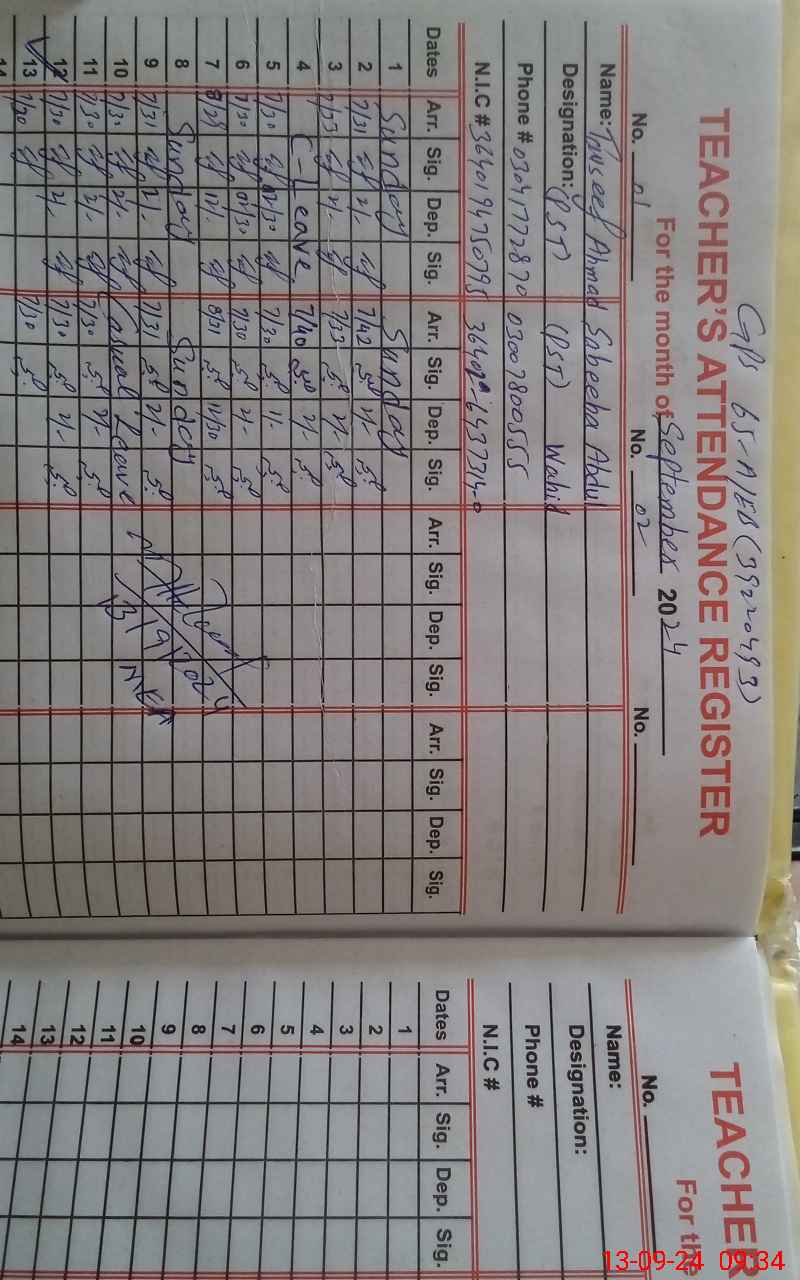 GPS 65-A/EB (39220493)
TEACHER'S ATTENDANCE REGISTER
For the month of September 2024
No. 01 No. 02 No.
Name: Tauseef Ahmad Sabeeha Abdul
Designation: (PST) (PST) Wahid
Phone # 03041772870 03007800555
N.I.C #
Dates Arr. Sig. Dep. Sig. Arr. Sig. Dep. Sig. Arr. Sig. Dep. Sig. Arr. Sig. Dep. Sig.
1 Sunday Sunday
2 7/31 2/- 7/42 2/-
3 7/33 2/- 7/33 2/-
4 C-Leave 7/40 2/-
5 7/30 02/30 7/30 1/-
6 7/30 01/30 7/30 2/-
7 8/29 12/- 8/31 12/30
8 Sunday Sunday
9 7/31 2/- 7/31 2/-
10 7/31 2/- Casual Leave
11 7/30 2/- 7/30 2/-
12 7/30 2/- 7/30 2/-
13 7/30 7/30
14
13/9/2024
MEA
TEACHER
For the
No.
Name:
Designation:
Phone #
N.I.C #
Dates Arr. Sig. Dep. Sig.
1
2
3
4
5
6
7
8
9
10
11
12
13
14
13-09-24 09:34